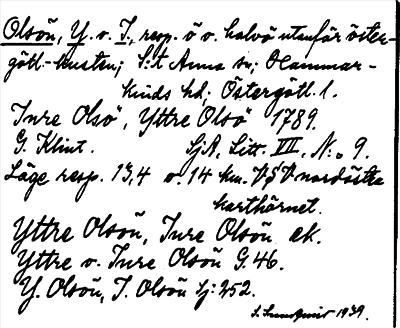 Olsön, Y. o. I., resp. ö o. halvö utanför öster-
götl.-kusten; S:t Anna sn; Hammar-
kinds hd; Östergötl. l.
Inre Olsö, Yttre Olsö 1789.
G. Klint. SjA, Litt. VII, N:o 9.
Läge resp. 13,4 o. 14 km. nordöstra
karthörnet.
Yttre Olsön, Inre Olsön ek.
Yttre o. Inre Olsön G. 46.
Y. Olsön, I. Olsön Sj: 252.
1939.